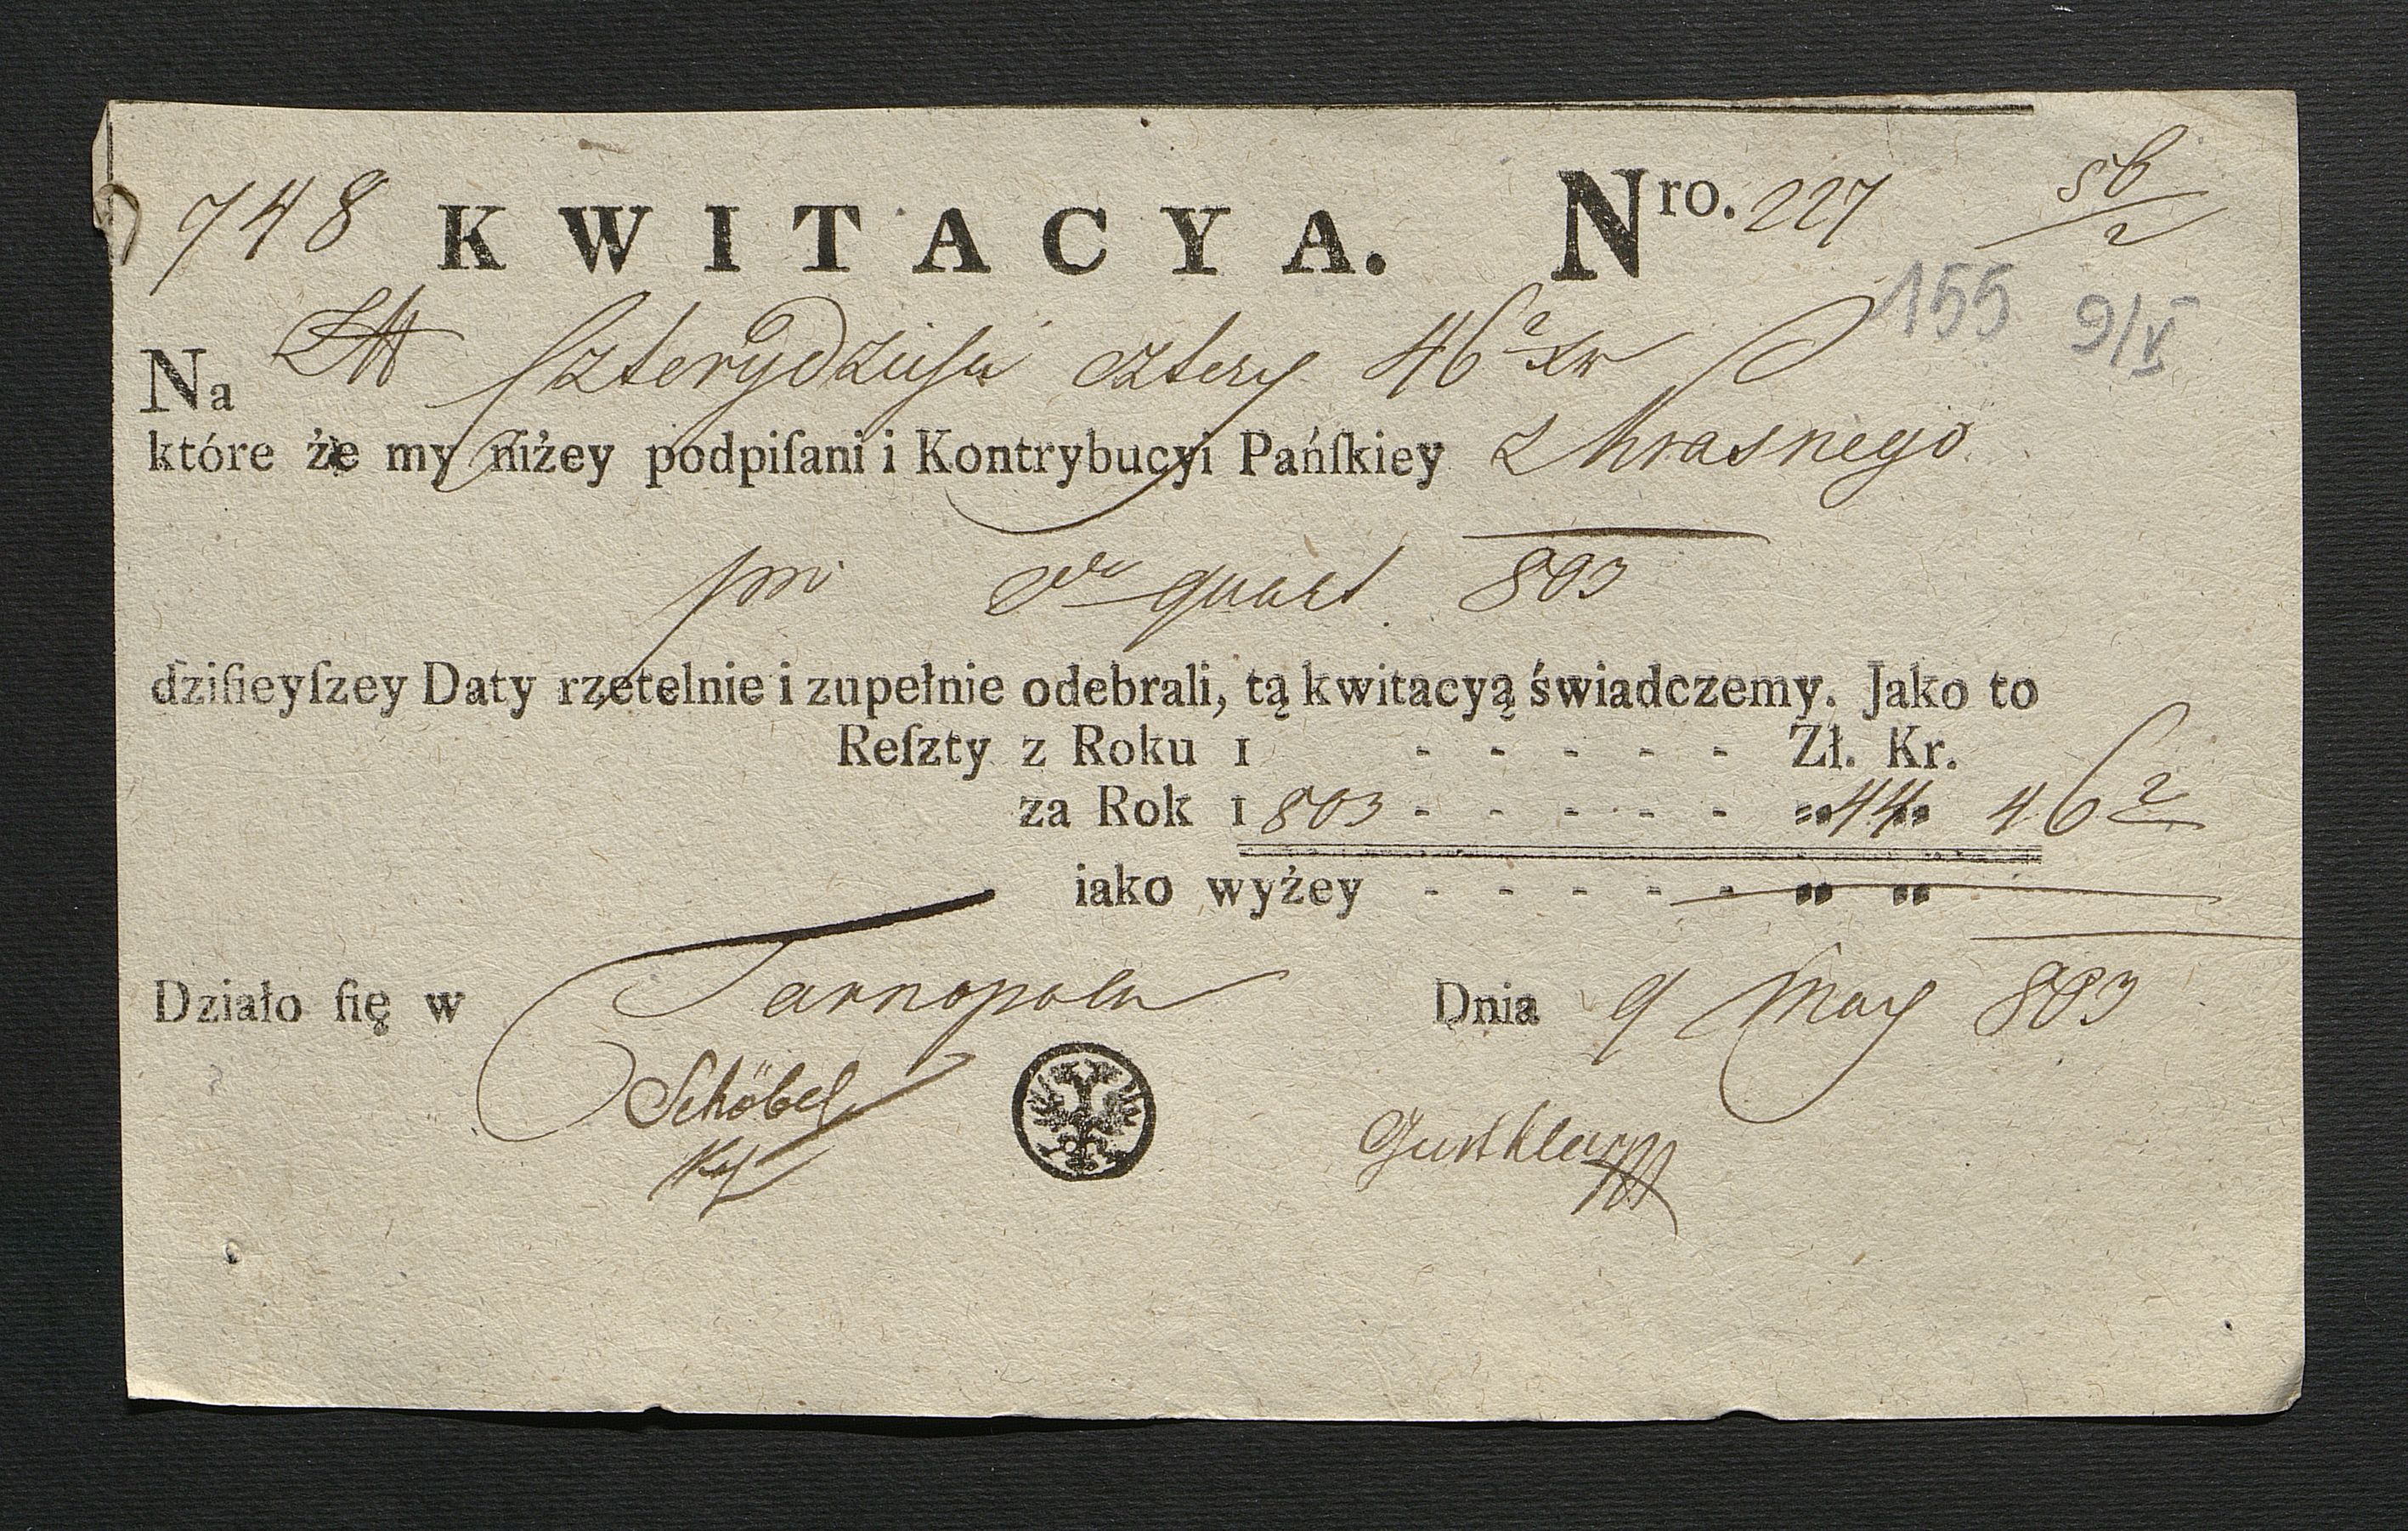 748 KWITACYA. Nro. 227
56/2
155 9/V
Na Szterydziesci cztery 46 2 xr
które że my niżey podpiſani i Kontrybucyi Pańſkiey z Krasnego
quart 803
dziſieyſzey Daty rzetelnie i zupełnie odebrali, tą kwitacyą świadczemy. Jako to
Reſzty z Roku 1 - - - - - Zł. Kr.
za Rok 1803 - - - - - „44„ 46 2
iako wyżey - - - - - „ „
Działo ſię w Tarnopolu Dnia 9 May 803
Schöbel